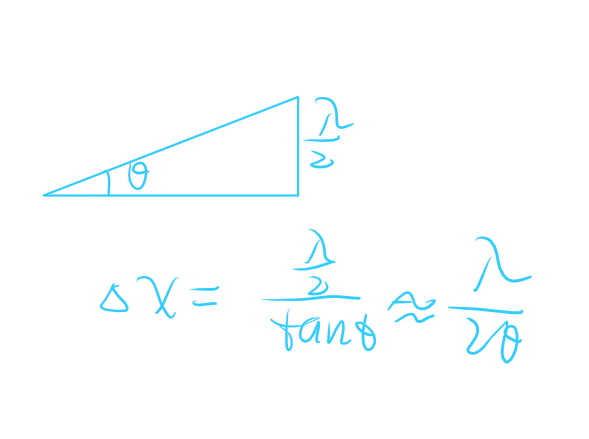 λ/2
θ
Δx = (λ/2)/tanθ ≈ λ/2θ